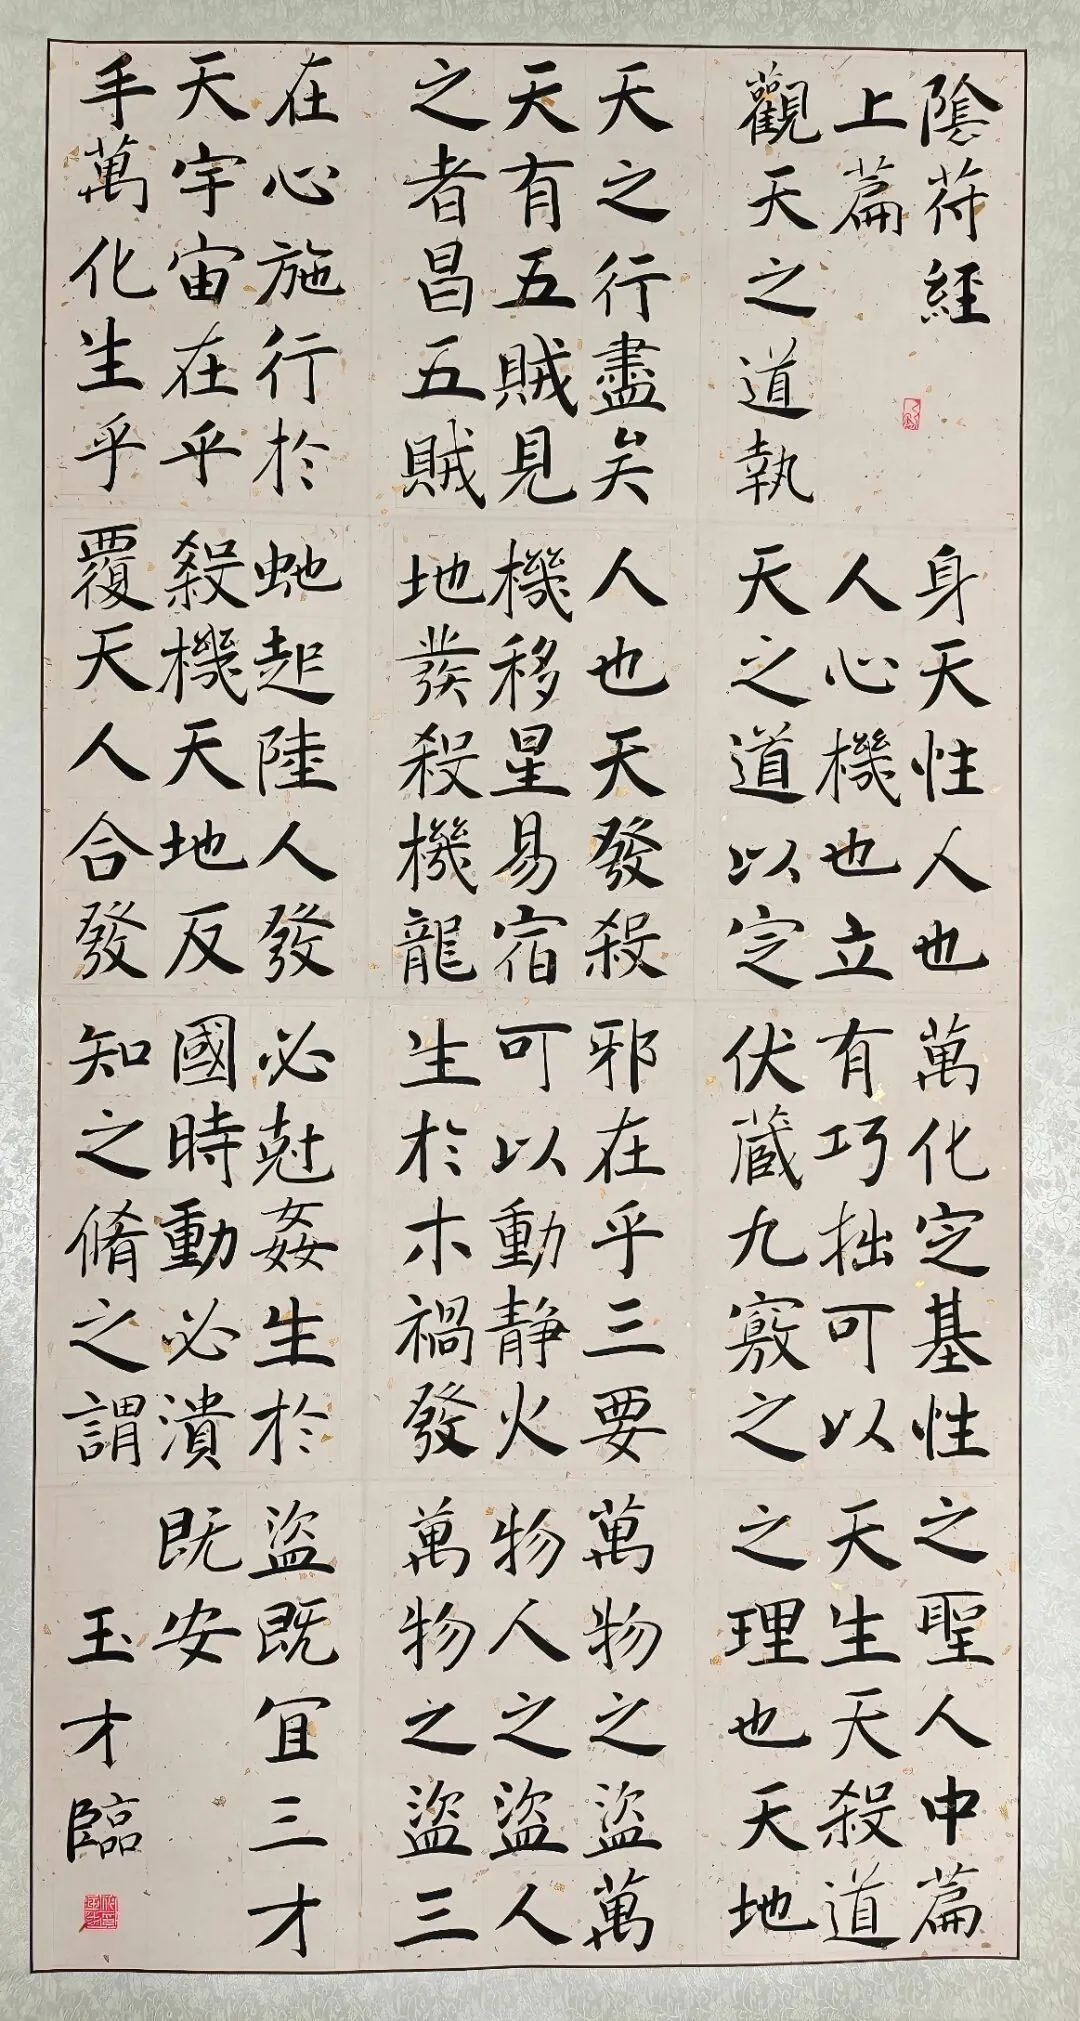 陰符經
上篇
觀天之道執
天之行盡矣
天有五賊見
之者昌五賊
在心施行於
天宇宙在乎
手萬化生乎
身天性人也
人心機也立
天之道以定
人也天發殺
機移星易宿
地發殺機龍
虵起陸人發
殺機天地反
覆天人合發
萬化定基性
有巧拙可以
伏藏九竅之
邪在乎三要
可以動静火
生於木禍發
必尅姦生於
國時動必潰
知之脩之謂
之聖人中篇
天生天殺道
之理也天地
萬物之盜萬
物人之盜人
萬物之盜三
盜既宜三才
既安
玉才臨